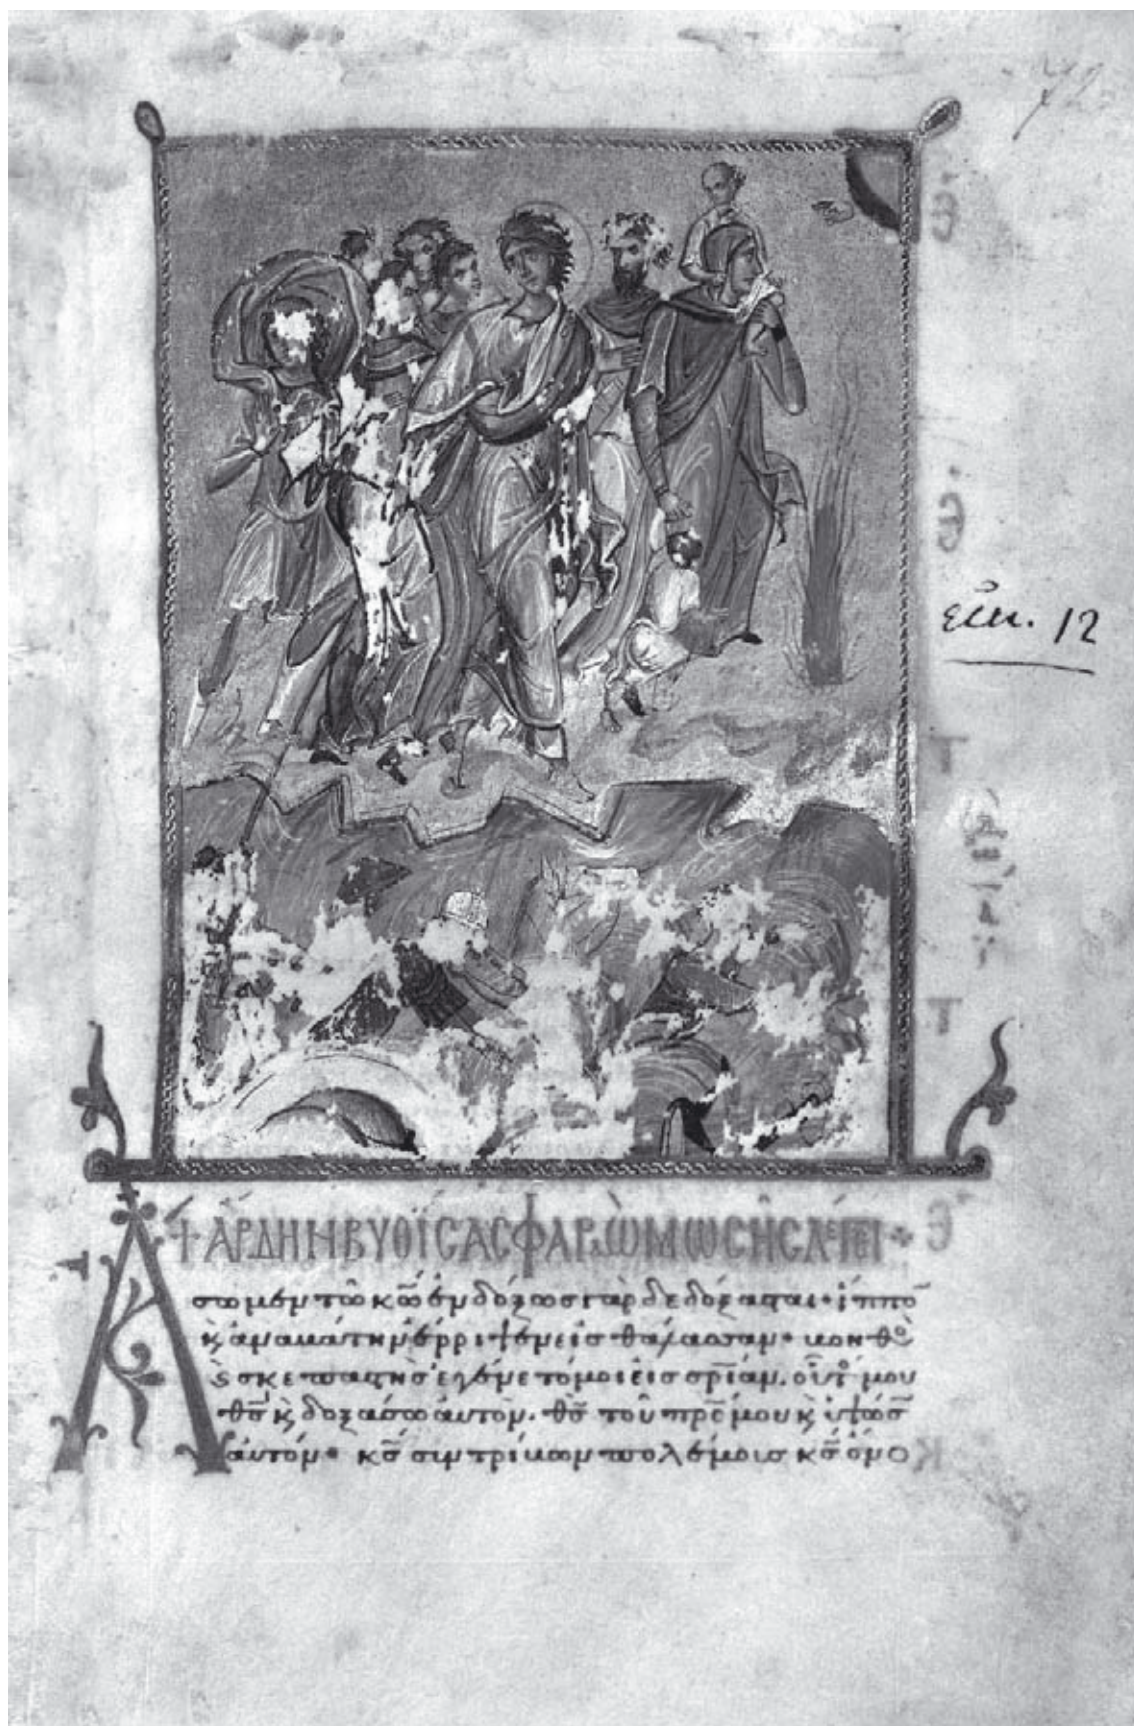 εἰκ. 12
+ ἌΡΔΗΝ ΒΥΘΊΣΑΣ ΦΑΡΑῺ ΜΩΣΗ͂Σ ΛΈΓΕΙ +
Ἄ
σωμεν τῶ κ̅ω̅ ἐνδόξως γὰρ δεδόξασται· ἵππο̅
ϗ ἀναβάτην ἔρριψεν εἰς θάλασσαν· βοηθὸς
ϗ σκεπαστὴς ἐγένετό μοι εἰς σ̅ρ̅ίαν. οὗτός μου
θ̅ς̅ ϗ δοξάσω ἀυτόν. θ̅ς̅ τοῦ π̅ρ̅ς̅ μου ϗ ὑψώσω
ἀυτόν· κ̅ς̅ συντρίβων πολέμους κ̅ς̅ ὄνο